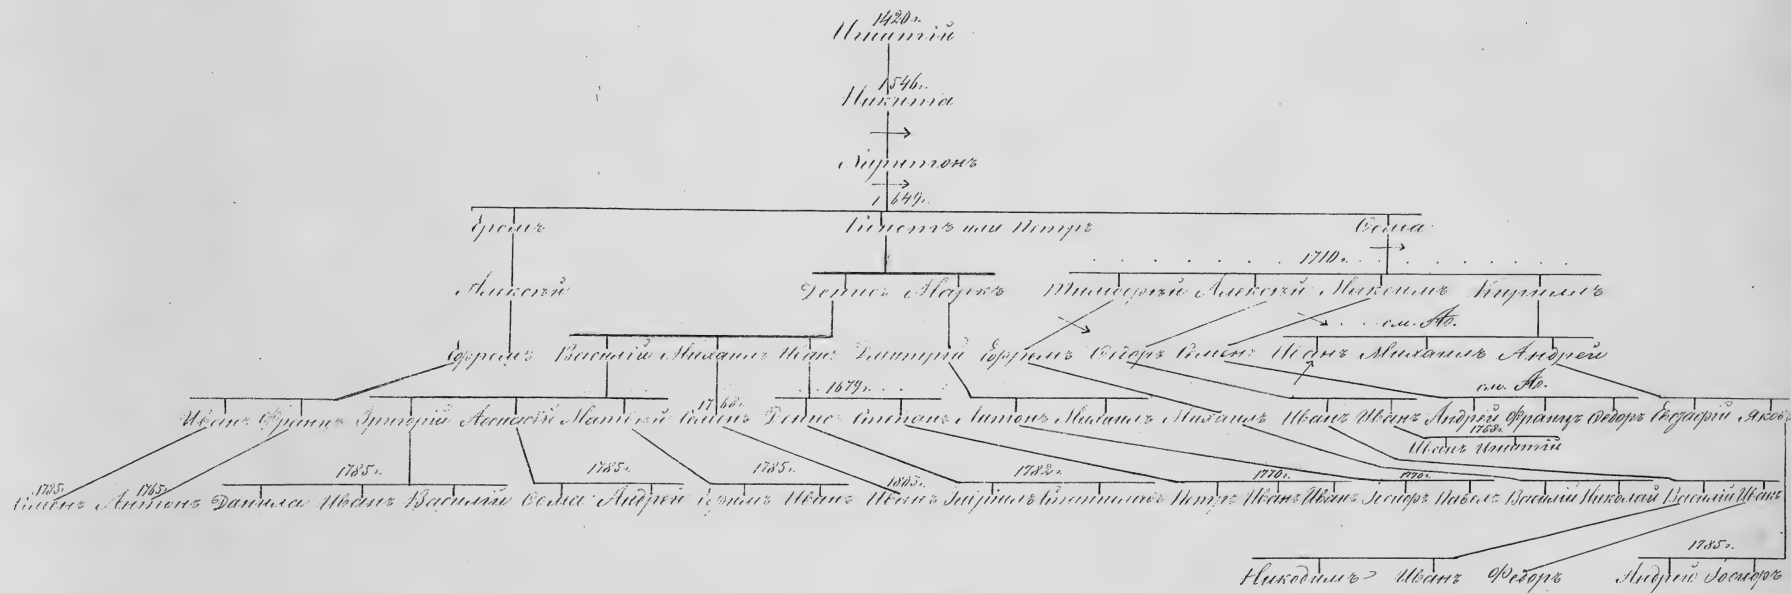 1420 г.
Игнатій
1546 г.
Никита
Харитонъ
1649 г.
или Петръ Ѳома
1710 г.
Алексѣй Денисъ Маркъ Тимоѳей Алексѣй Максимъ Кириллъ
см. А2.
Ефремъ Василій Михаилъ Иванъ Дмитрій Ефремъ Ѳедоръ Семенъ Иванъ Михаилъ Андрей
1679 г. см. А2.
1768 г.
Иванъ Францъ Григорій Аѳанасій Матвѣй Семенъ Денисъ Степанъ Антонъ Михаилъ Михаилъ Иванъ Иванъ Андрей Францъ Ѳедоръ Яковъ
1768 г.
Иванъ Игнатій
1785 г. 1765 г. 1785 г. 1785 г. 1785 г. 1803 г. 1782 г. 1770 г. 1770 г.
Семенъ Антонъ Данила Иванъ Василій Ѳома Андрей Ефимъ Иванъ Иванъ Петръ Иванъ Иванъ Павелъ Василій Николай Василій Иванъ
1785 г.
Никодимъ Иванъ Ѳедоръ Андрей Іосифъ